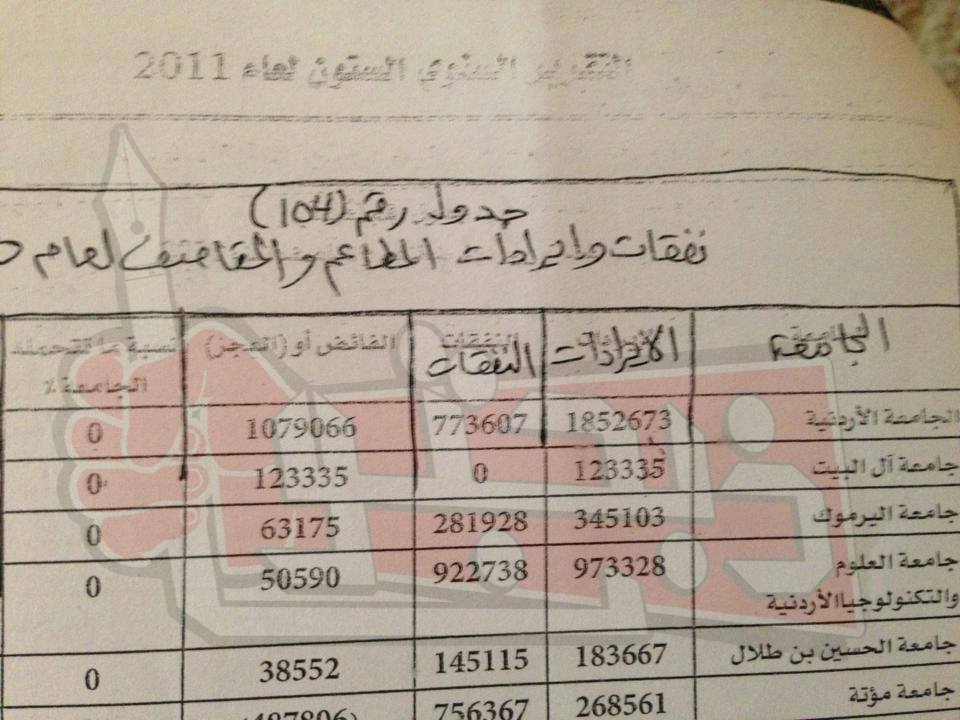 التقرير السنوي الستون لعام 2011
جدول رقم (104)
نفقات وايرادات المطاعم والمقاصف لعام
الجامعة الايرادات النفقات الفائض أو (العجز) نسبة ما تتحمله الجامعة %
الجامعة الأردنية 1852673 773607 1079066 0
جامعة آل البيت 123335 0 123335 0
جامعة اليرموك 345103 281928 63175 0
جامعة العلوم والتكنولوجياالأردنية 973328 922738 50590 0
جامعة الحسين بن طلال 183667 145115 38552 0
جامعة مؤتة 268561 756367 (487806)